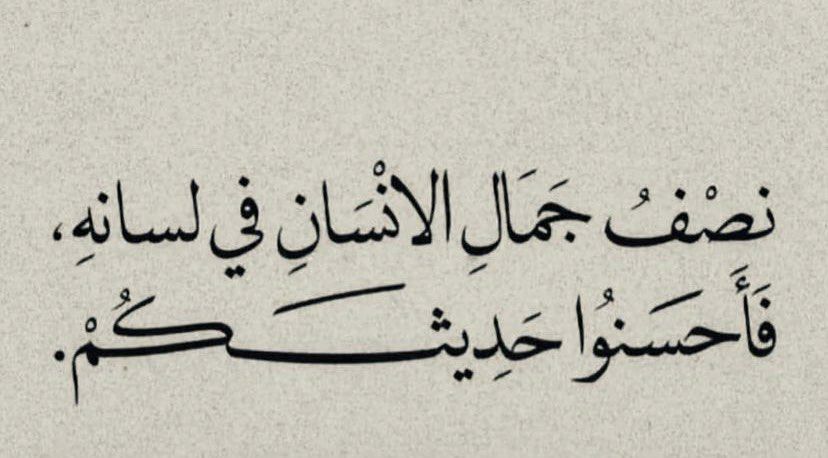 نصْفُ جَمَالِ الانْسَانِ في لسانهِ،
فَأَحسَنوُا حَدِيثـكُمْ.